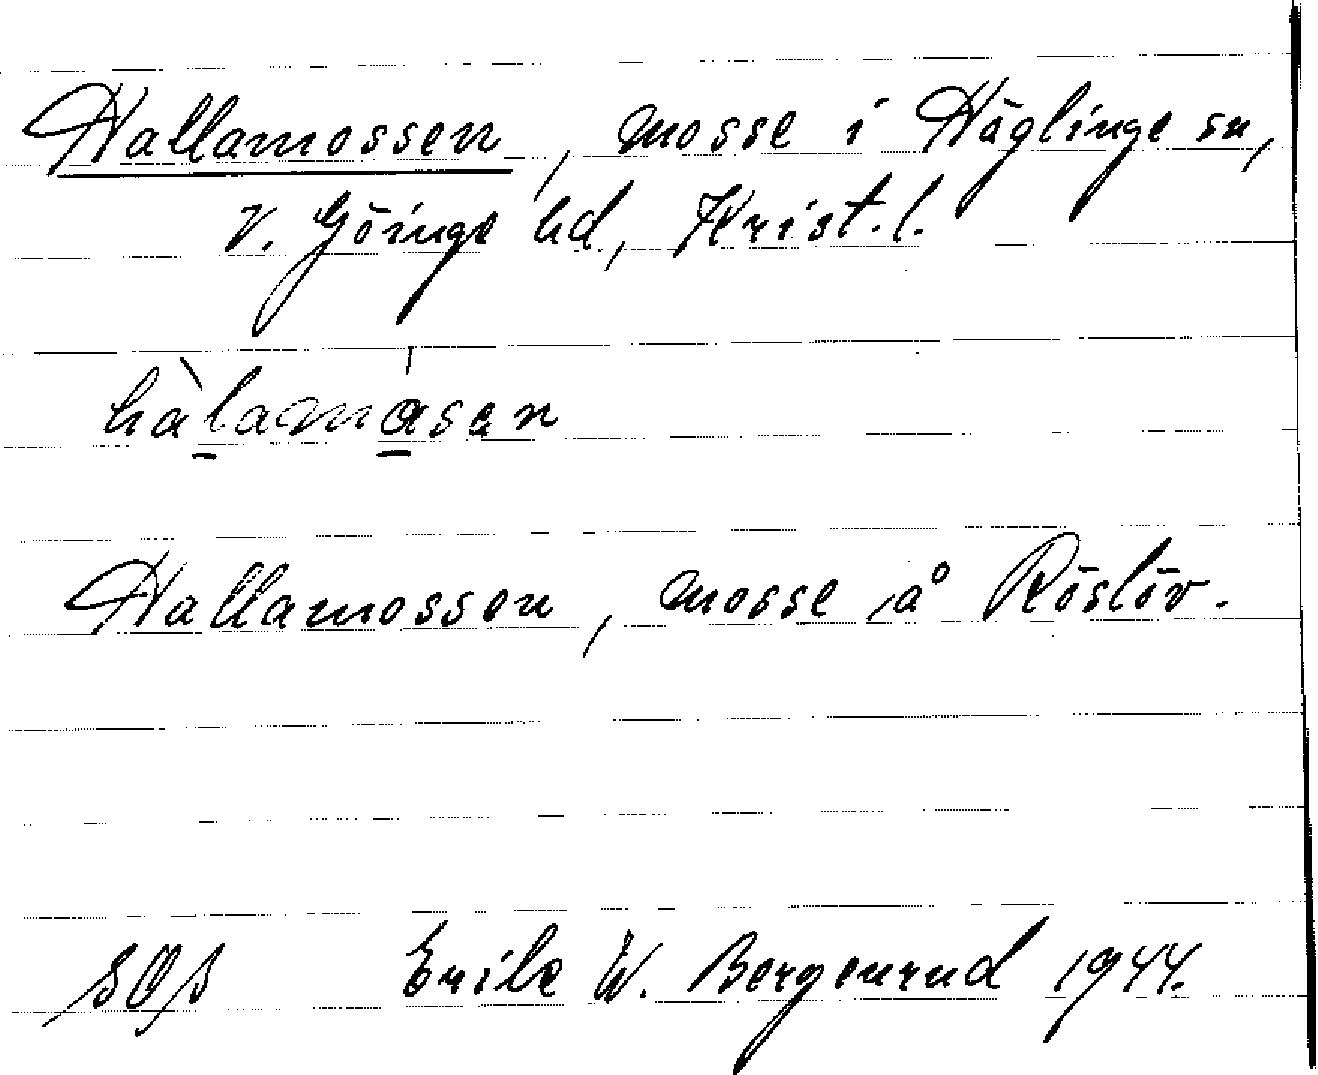 Hallamossen, mosse i Häglinge sn,
V. Göinge hd, Krist. l.
hàlamåsen
Hallamossen, mosse å Röslöv.
SOS Erik W. Bergenrud 1944.